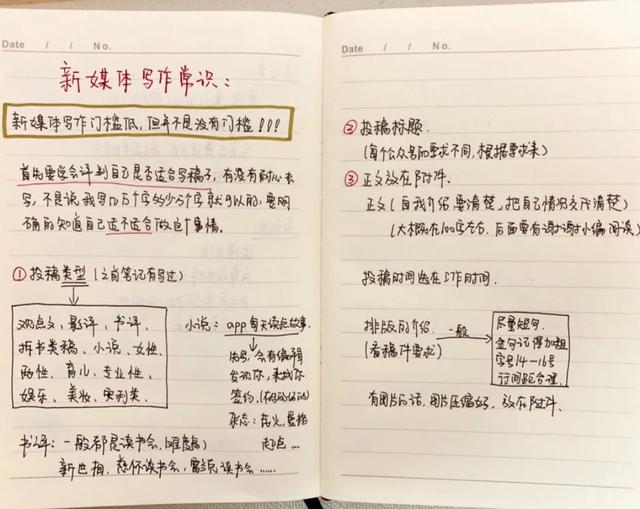 Date / / No.
新媒体写作常识：
新媒体写作门槛低，但并不是没有门槛！！！
首先要学会评判自己是否适合写稿子，有没有耐心去
写，不是说我写几万个字的少5个字就可以的，要明
确的知道自己适不适合做这个事情。
① 投稿类型（之前笔记有写过）
观点文，影评，书评，
拆书类稿、小说、女性、
两性、育儿、专业性、
娱乐、美妆、实利类.
小说：app每天读点故事.
内号，会有编辑
发现你，来找你
签约.
杂志：花火，爱格
书评：一般都是读书会，(难度高)
新世相，慈怀读书会，富兰克读书会……
Date / / No.
② 投稿标题.
(每个公众号的要求不同，根据要求来)
③ 正文放在附件.
正文（自我介绍要清楚，把自己情况交代清楚）
(大概在100字左右，后面要有谢谢小编阅读)
投稿时间选在工作时间.
排版的介绍. 一般
(看稿件要求)
尽量短句.
金句记得加粗
字号14－16号
行间距合理.
有图片的话，图片压缩好，放在附件.